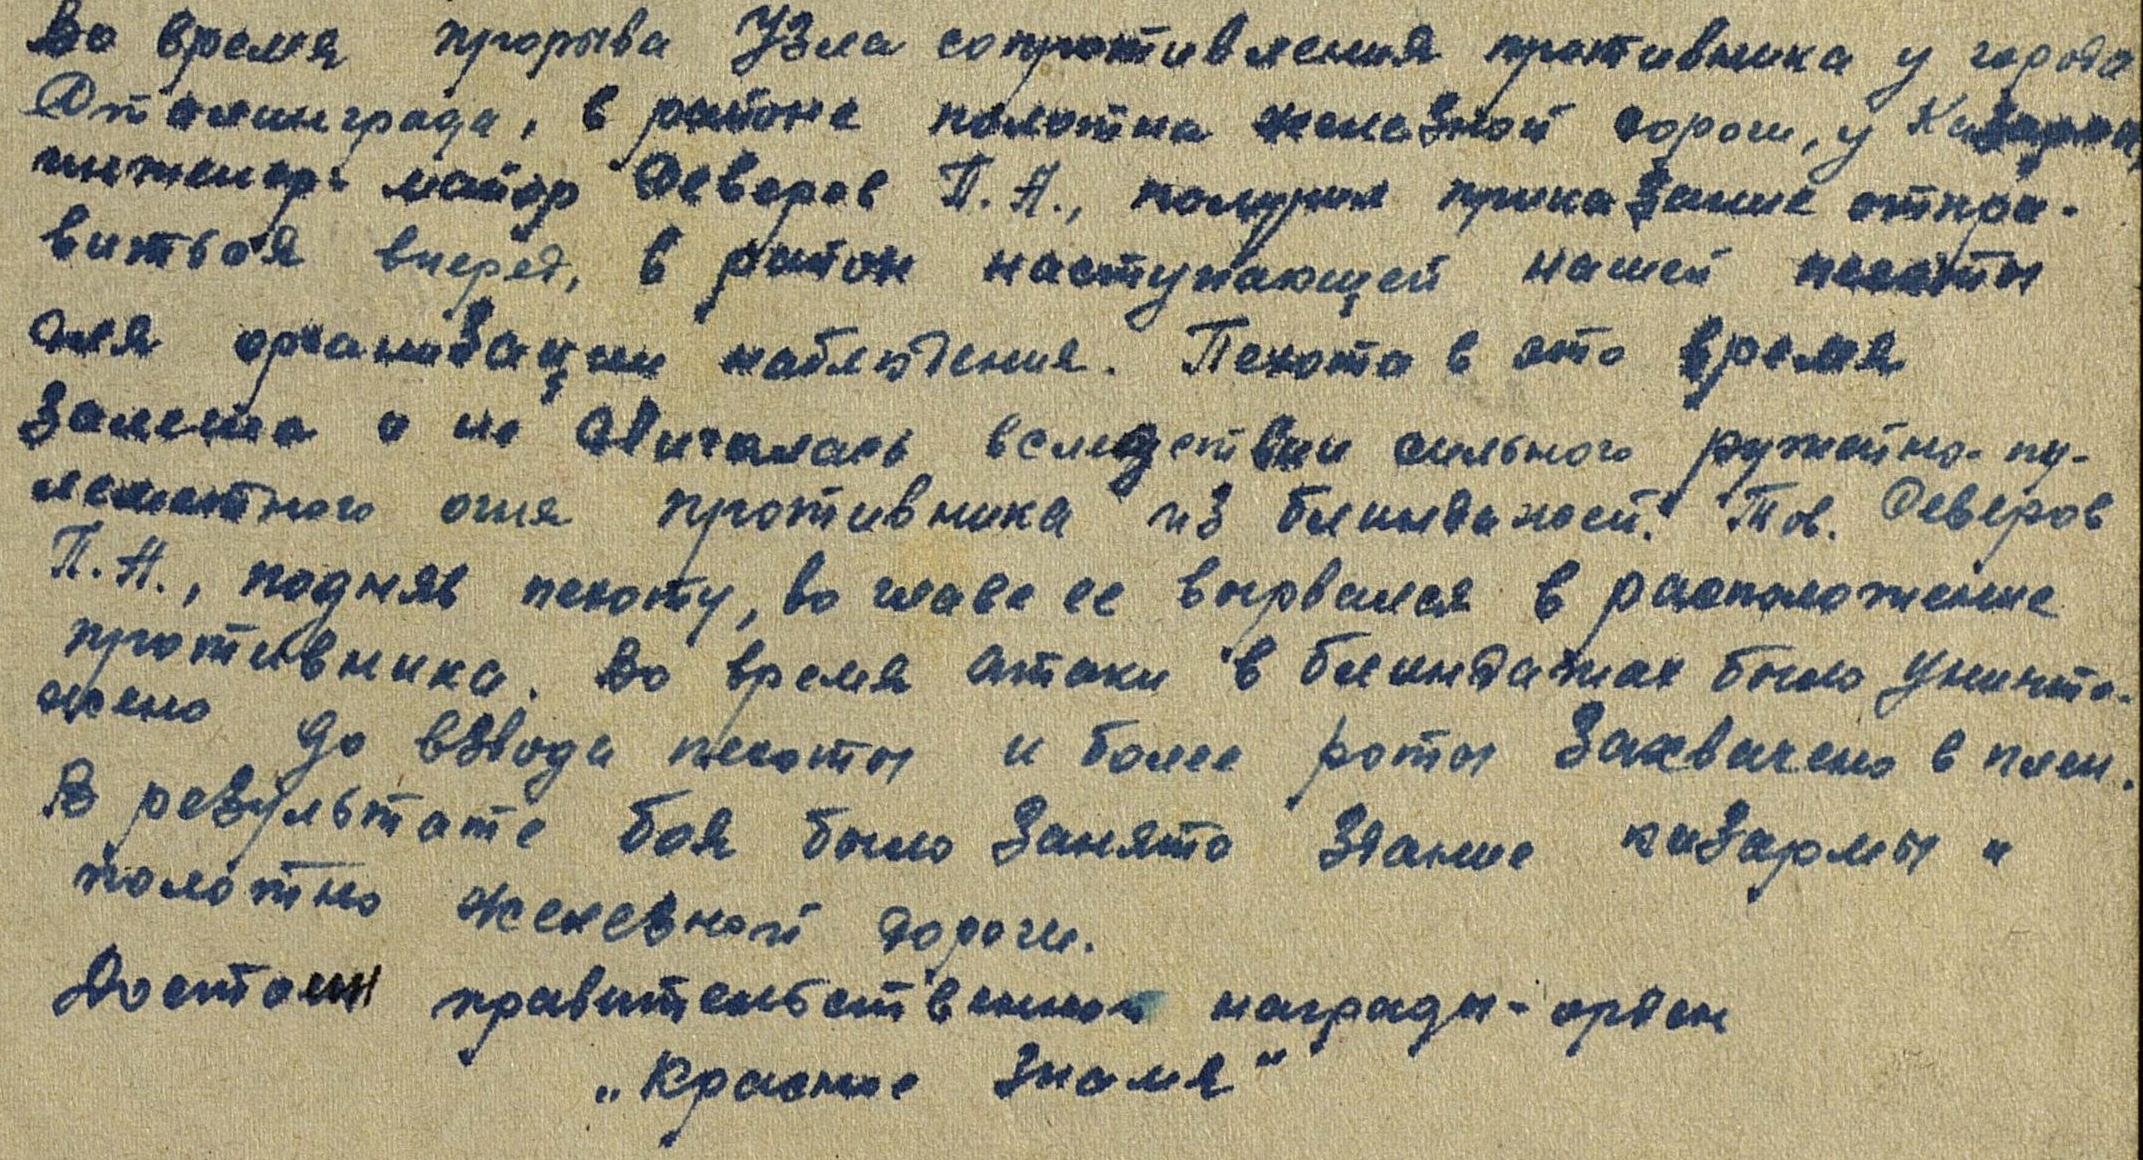 Во время прорыва Узла сопротивления противника у города
Сталинграда, в районе полотна железной дороги, у Казармы,
инженер-майор Северов П.А., получил приказание отпра-
виться вперед, в район наступающей нашей пехоты
для организации наблюдения. Пехота в это время
залегла и не двигалась вследствии сильного ружейно-пу-
леметного огня противника из блиндажей. Тов. Северов
П.А., подняв пехоту, во главе ее ворвался в расположение
противника. Во время атаки в блиндажах было уничто-
жено до взвода пехоты и более роты захвачено в плен.
В результате боя было занято здание казармы и
полотно железной дороги.
Достоин правительственной награды - орден
„Красное Знамя"